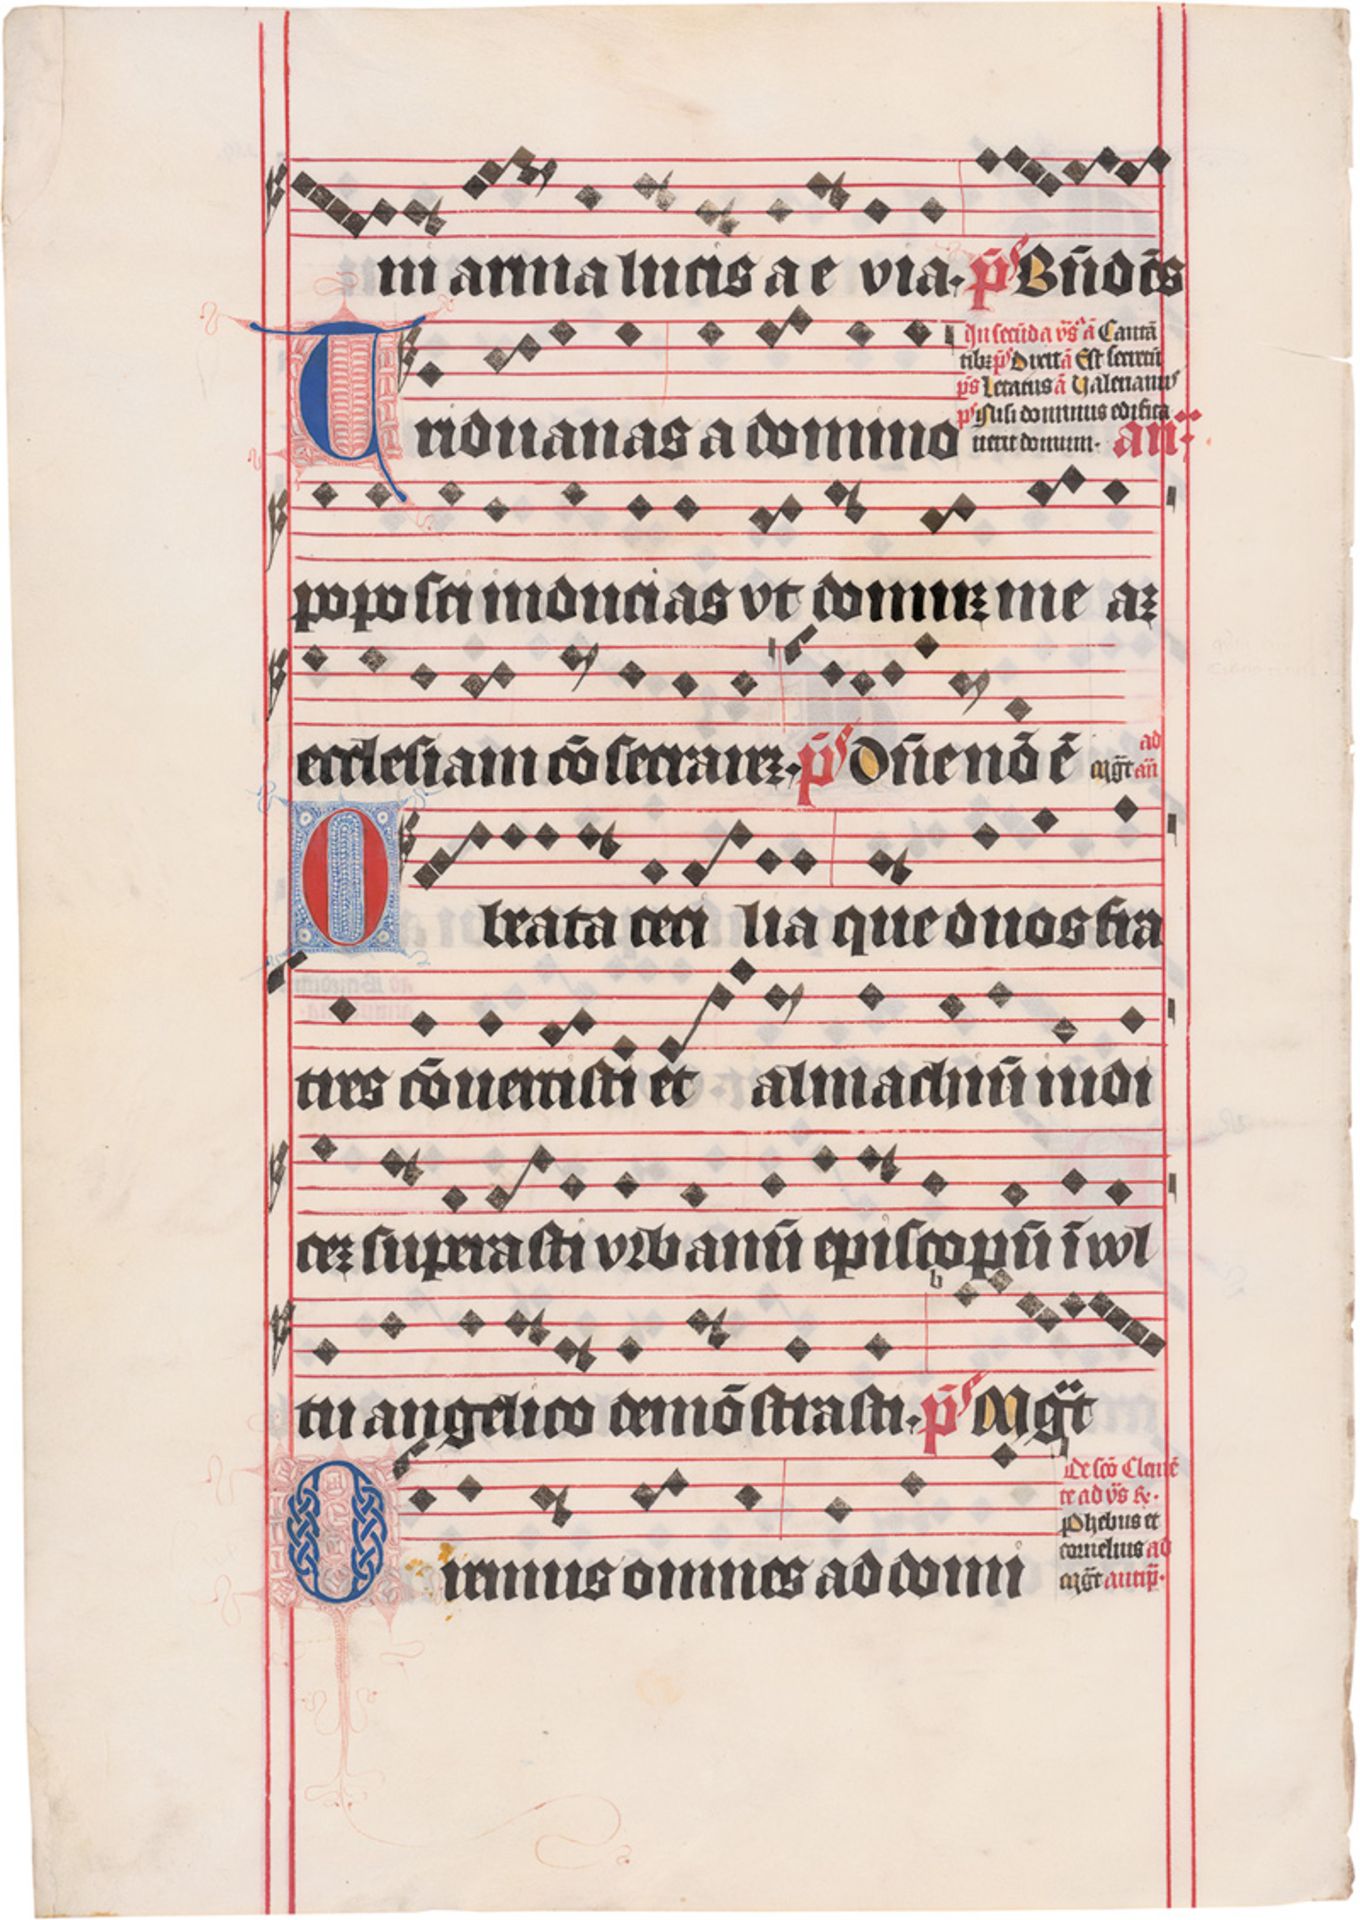 ni arma lucis a e via. ps Bn̄dc̄s
In secūda vs̄ a Cantā
tibꝫ ps Dixit ā Est secretū
ps Letatus ā Valerianus
ps Nisi dominus edifica
uerit domum. an̄
Triduanas a domino
poposci inducias vt domūꝫ me aꝫ
ecclesiam cōsecrareꝫ. ps Dn̄e nō ē ad
mgt̄ an̄
O beata ceci lia que duos fra
tres cōuertisti et almachiū iudi
ceꝫ superasti vrbanū episcopū ī vul
tu angelico demōstrasti. ps Mgt̄
De sc̄o Clemē
te ad vs̄ R̄.
Phebus et
cornelius ad
mgt̄ antip̄.
Oremus omnes ad domi